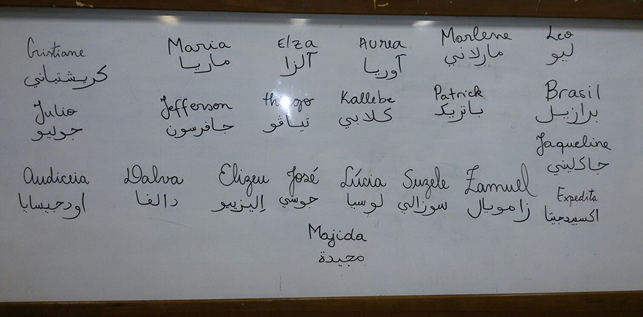 Cristiane Maria Elza Aurea Marlene Leo
كريشتياني ماريا آلزا آوريا مارلاني ليو
Julio Jefferson thiago Kallebe Patrick Brasil
جوليو جافرسون تياڤو كلابي باتريك برازيل
Jaqueline
جاكليني
Audiceia Dalva Elizeu José Lúcia Suzele Zamuel Expedita
اودجيسايا دالفا إليزييو جوسي لوسيا سوزالي زامويال اكسبيدجيتا
Majida
مجيدة